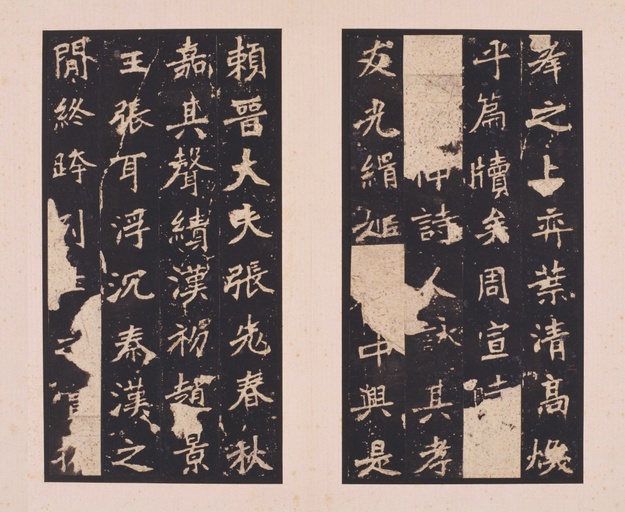 峯之上弈葉清高煥
乎篇牘矣周宣時
仲詩人詠其孝
友光緝中興是
賴晉大夫張老春秋
嘉其聲績漢初趙景
王張耳浮沉秦漢之
閒終跨列之